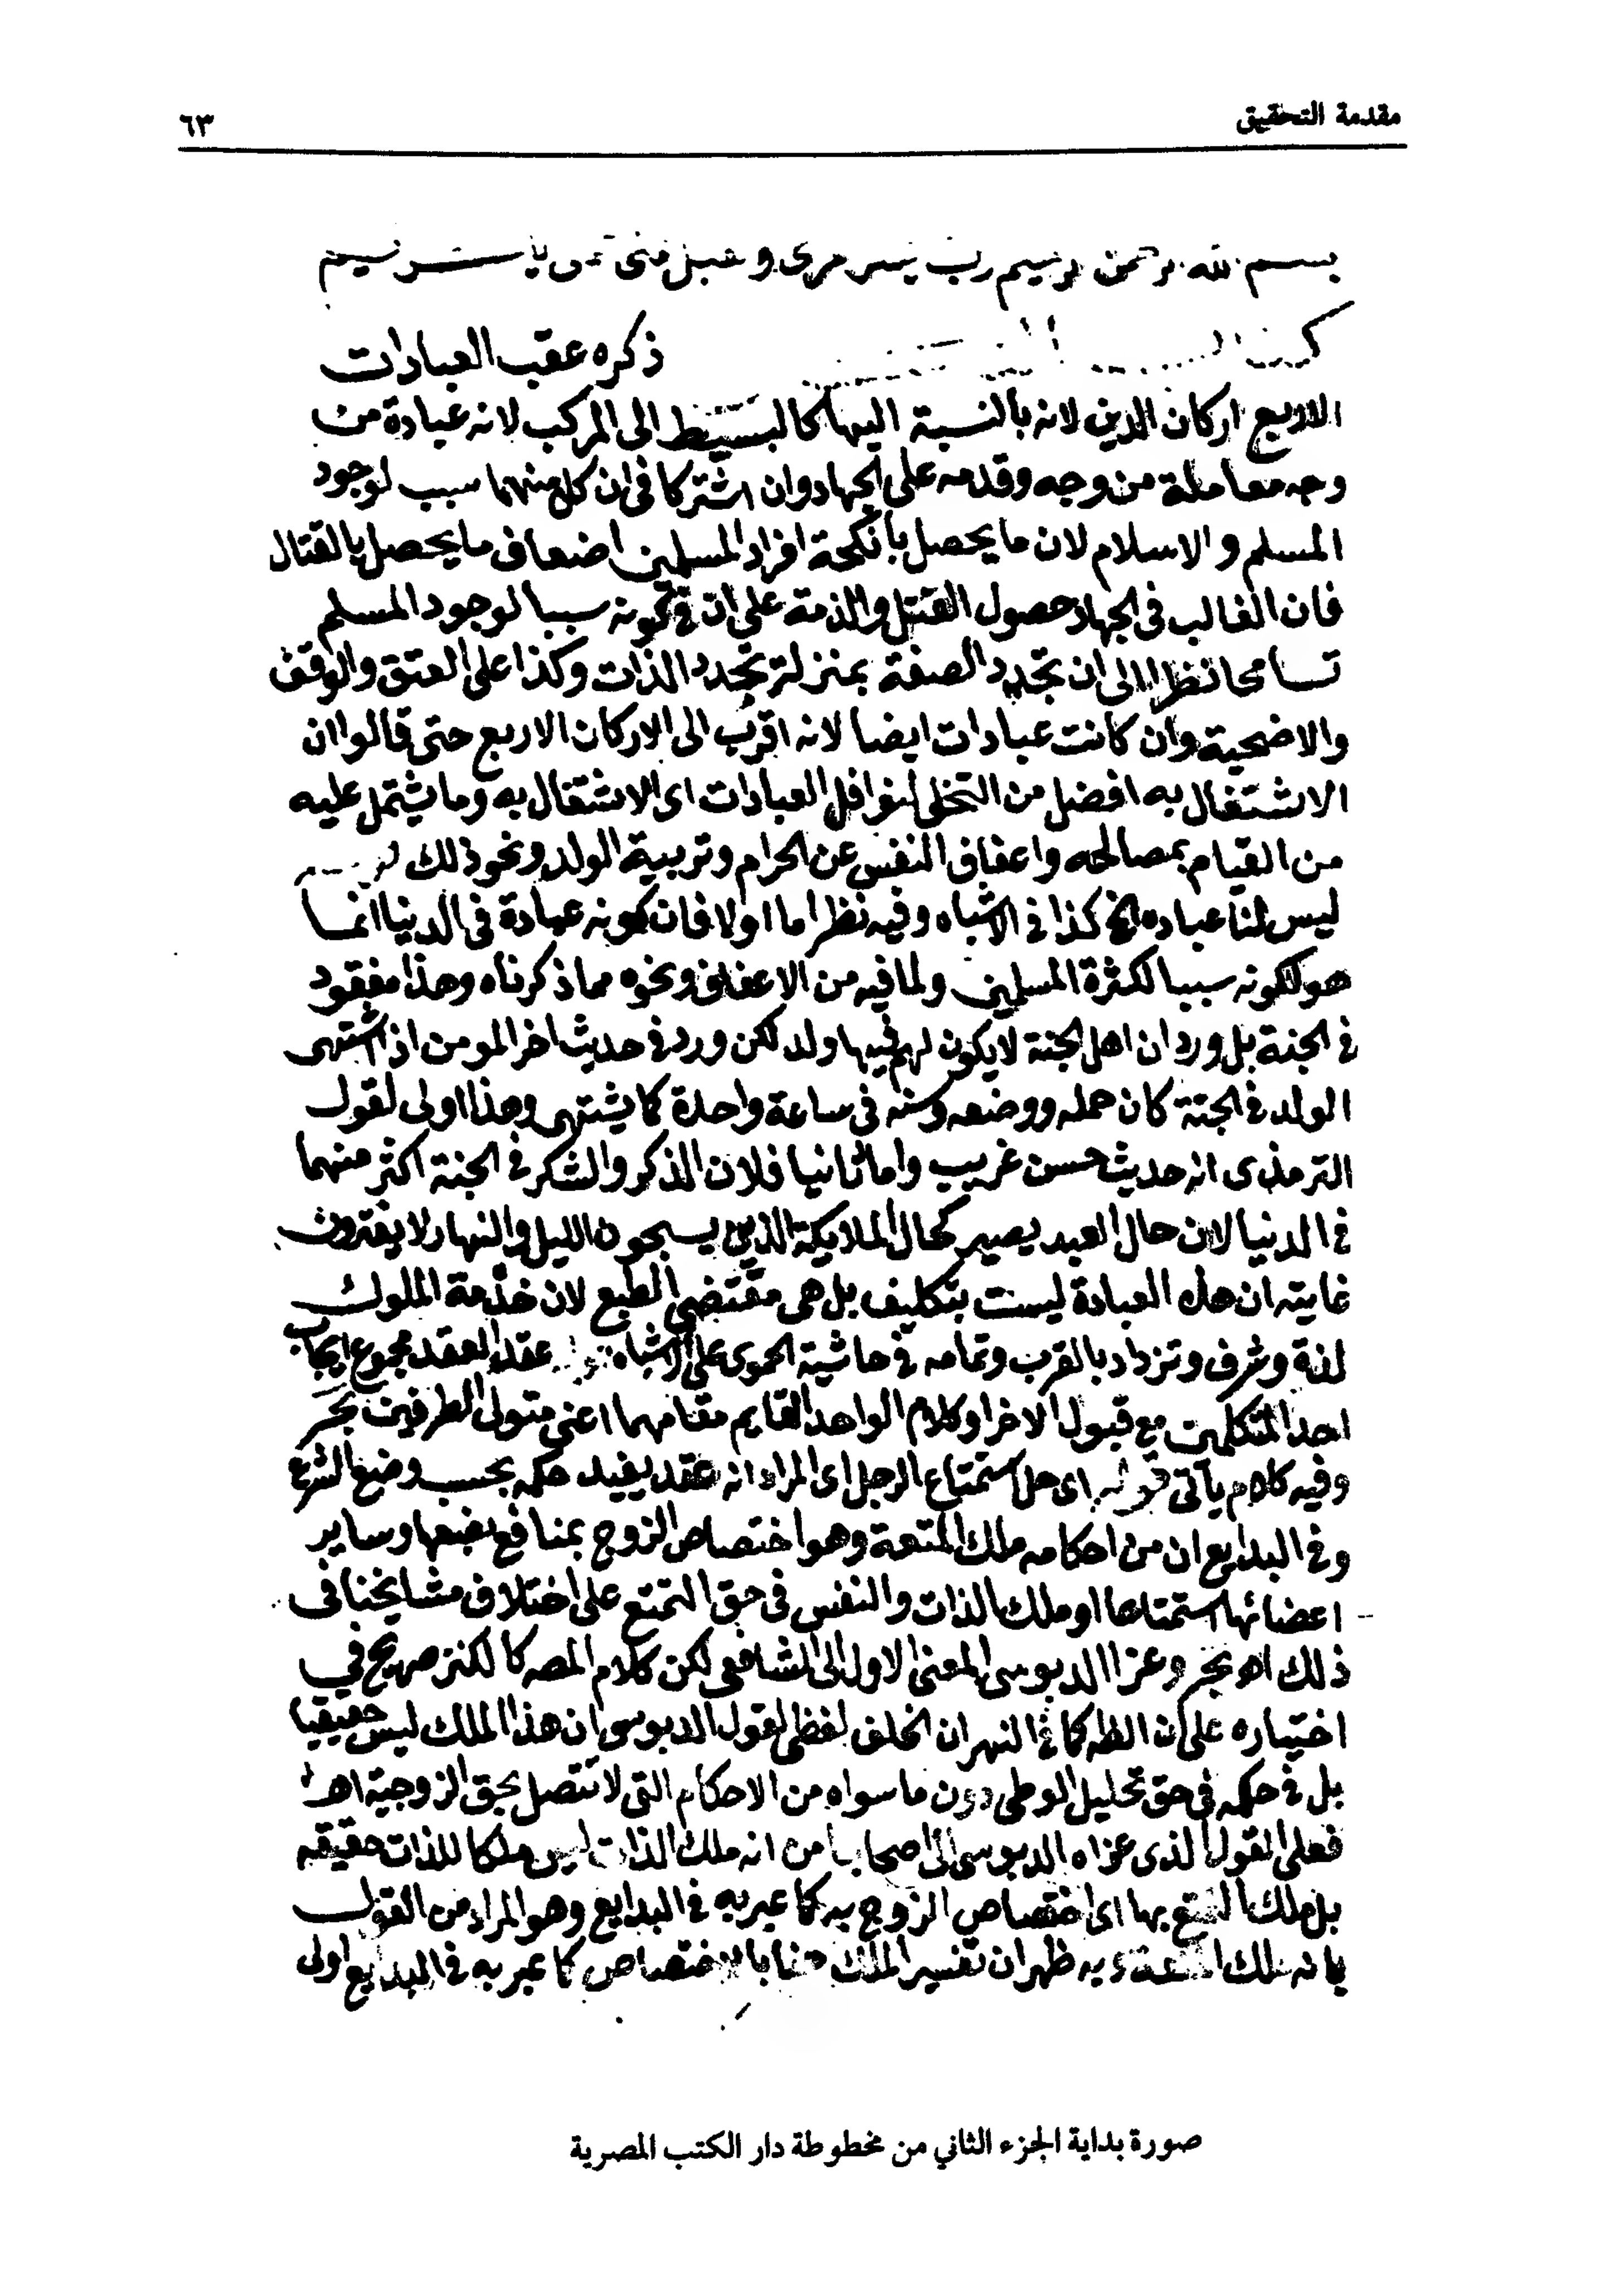 مقدمة التحقيق
٦٣
بسم الله الرحمن الرحيم رب يسر
ذكره عقب العبادات
الاربع اركان الدين لانه بالنسبة اليها كالبسيط الى المركب لانه عبادة من
وجه معاملة من وجه وقدمه على الجهاد وان اشتركا في ان كل منهما سبب لوجود
المسلم والاسلام لان ما يحصل بانكحة افراد المسلمين اضعاف ما يحصل بالقتال
فان الغالب في الجهاد حصول القتل والذمة على ان في كونه سببا لوجود المسلم
تسامحا نظرا الى ان تجدد الصفة بمنزلة تجدد الذات وكذا على العتق والوقف
والاضحية وان كانت عبادات ايضا لانه اقرب الى الاركان الاربع حتى قالوا ان
الاشتغال به افضل من التخلى لنوافل العبادات اى الاشتغال به وما يشتمل عليه
من القيام بمصالحه واعفاف النفس عن الحرام وتربية الولد ونحو ذلك
ليس لنا عباده الخ كذا في الاشباه وفيه نظر اما اولا فان كونه عبادة في الدنيا انما
هو لكونه سببا لكثرة المسلمين ولما فيه من الاعفاف ونحوه مما ذكرناه وهذا مفقود
في الجنة بل ورد ان اهل الجنة لا يكون لهم فيها ولد لكن ورد في حديث اخر المومن اذا اشتهى
الولد في الجنة كان حمله ووضعه وسنه في ساعة واحدة كما يشتهى وهذا اولى لقول
الترمذى انه حديث حسن غريب واما ثانيا فلان الذكر والشكر في الجنة اكثر منهما
في الدنيا لان حال العبد يصير كحال الملايكة الذين يسبحون الليل والنهار لا يفترون
غايته ان هذه العبادة ليست بتكليف بل هى مقتضى الطبع لان خذمة الملوك
لذة وشرف وتزداد بالقرب وتمامه في حاشية الحموى على الاشباه عقد العقد مجموع ايجاب
احد المتكلمين مع قبول الاخر او كلام الواحد القايم مقامهما اعنى متولى الطرفين بحر
وفيه كلام يأتى قوله اى حل استمتاع الرجل اى المراد انه عقد يفيد حكمه بحسب وضع الشرع
وفي البدايع ان من احكامه ملك المتعة وهو اختصاص الزوج بمنافع بضعها وساير
اعضائها استمتاعا او ملك الذات والنفس في حق التمتع على اختلاف مشايخنا فى
ذلك اه بحر وعزا الدبوسى المعنى الاول الى الشافعى لكن كلام المصه كالكنز صريح في
اختياره على ان الظه كما في النهر ان الخلف لفظى لقول الدبوسى ان هذا الملك ليس حقيقيا
بل في حكمه في حق تحليل الوطى دون ما سواه من الاحكام التى لا تتصل بحق الزوجية اه
فعلى القول الذى عزاه الدبوسى الى اصحابنا من انه ملك الذات ليس ملكا للذات حقيقه
بل ملك التمتع بها اى اختصاص الزوج به كما عبر به في البدايع وهو المراد من القول
بانه ملك المتعة وبه ظهر ان تفسير الملك هنا بالاختصاص كما عبر به في البدايع اولى
صورة بداية الجزء الثاني من مخطوطة دار الكتب المصرية